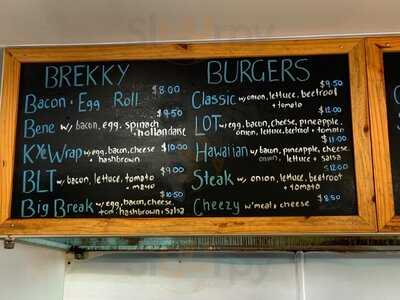 BREKKY
Bacon & Egg Roll $8.00
Bene w/ bacon, egg, spinach $9.50
+ hollandaise
Wrap w/ egg, bacon, cheese $10.00
+ hashbrown
BLT w/ bacon, lettuce, tomato $9.00
+ mayo
Big Break w/ egg, bacon, cheese, $10.50
tom. hashbrown + salsa
BURGERS
Classic w/ onion, lettuce, beetroot $9.50
+ tomato
LOT w/ egg, bacon, cheese, pineapple, $12.00
onion, lettuce, beetroot + tomato
Hawaiian w/ bacon, pineapple, cheese $11.00
onion, lettuce + salsa
Steak w/ onion, lettuce, beetroot $12.00
+ tomato
Cheezy w/ meat + cheese $8.50